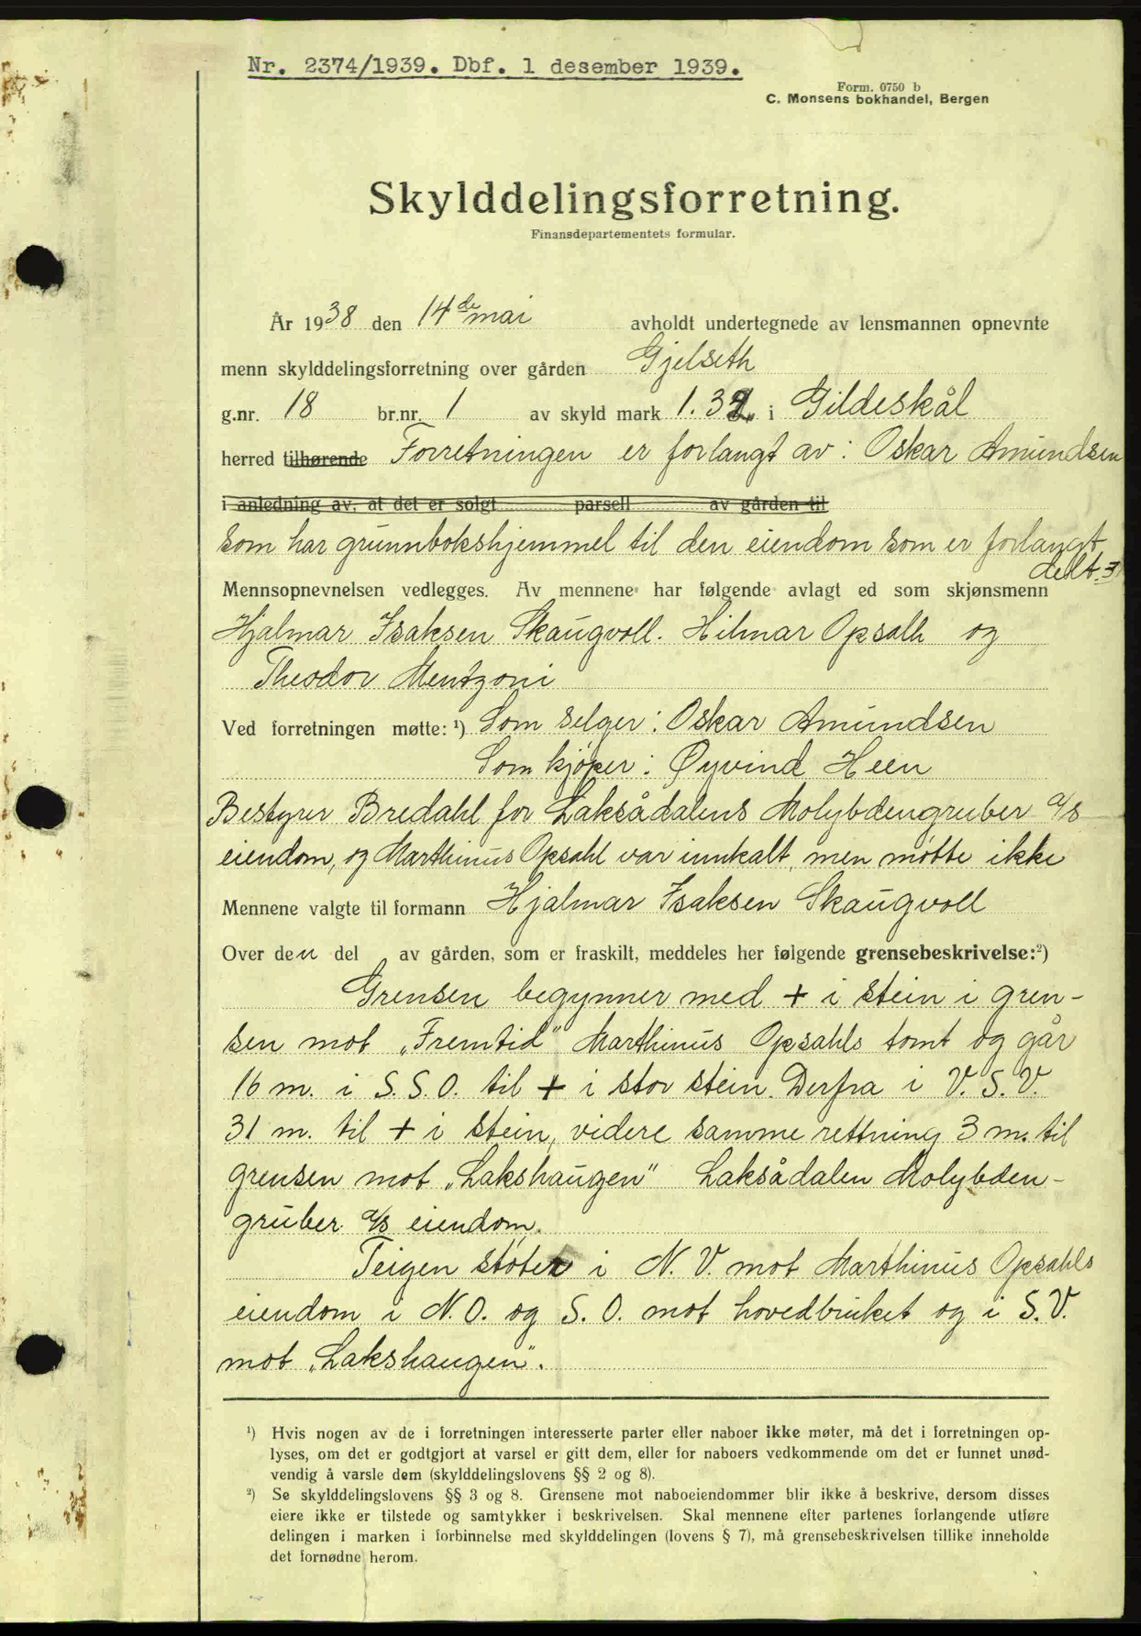 Nr. 2374/1939. Dbf. 1 desember 1939.
Form. 0750 b
C. Monsens bokhandel, Bergen
Skylddelingsforretning.
Finansdepartementets formular.
År 1938 den 14de mai avholdt undertegnede av lensmannen opnevnte
menn skylddelingsforretning over gården Gjelseth
g.nr. 18 br.nr. 1 av skyld mark 1.32 i Gildeskål
herred tilhørende Forretningen er forlangt av: Oskar Amundsen
i anledning av, at det er solgt parsell av gården til
som har grunnbokshjemmel til den eiendom som er forlangt
delt.
Mennsopnevnelsen vedlegges. Av mennene har følgende avlagt ed som skjønsmenn
Hjalmar Isaksen Skaugvoll. Hilmar Opsalh og
Theodor Mentzoni
Ved forretningen møtte: ¹) Som selger: Oskar Amundsen
Som kjøper: Øyvind Heen
Bestyrer Bredahl for Laksådalens Molybdengruber a/s
eiendom, og Marthinus Opsahl var innkalt, men møtte ikke
Mennene valgte til formann Hjalmar Isaksen Skaugvoll
Over den del av gården, som er fraskilt, meddeles her følgende grensebeskrivelse:²)
Grensen begynner med + i stein i gren-
sen mot „Fremtid" Marthinus Opsahls tomt og går
16 m. i S.S.O. til + i stor stein. Derfra i V.S.V.
31 m. til + i stein, videre samme rettning 3 m. til
grensen mot „Lakshaugen" Laksådalen Molybden-
gruber a/s eiendom.
Teigen støter i N.V. mot Marthinus Opsahls
eiendom i N.O. og S.O. mot hovedbruket og i S.V.
mot „Lakshaugen".
¹) Hvis nogen av de i forretningen interesserte parter eller naboer ikke møter, må det i forretningen op-
lyses, om det er godtgjort at varsel er gitt dem, eller for naboers vedkommende om det er funnet unød-
vendig å varsle dem (skylddelingslovens §§ 2 og 8).
²) Se skylddelingslovens §§ 3 og 8. Grensene mot naboeiendommer blir ikke å beskrive, dersom disses
eiere ikke er tilstede og samtykker i beskrivelsen. Skal mennene efter partenes forlangende utføre
delingen i marken i forbinnelse med skylddelingen (lovens § 7), må grensebeskrivelsen tillike inneholde
det fornødne herom.